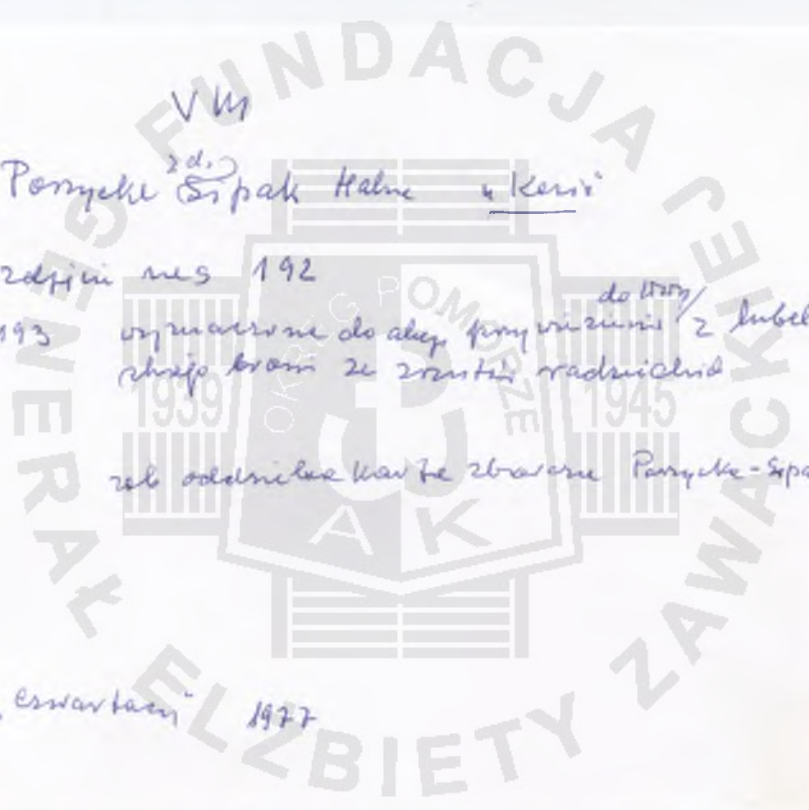 VIII
Porzycka z d. Sipak Halina "Kasia"
zdjęcie nr 192
193 wyznaczone do akcji przywiezienia do Wwy / z lubel
skiego broni ze zrzutów radzieckich
zob oddzielna karta Porzycka-Sipa
"Czwartacy" 1977
FUNDACJA
GENERAŁ ELŻBIETY ZAWACKIEJ
OKRĘG POMORZE
1939 1945
AK